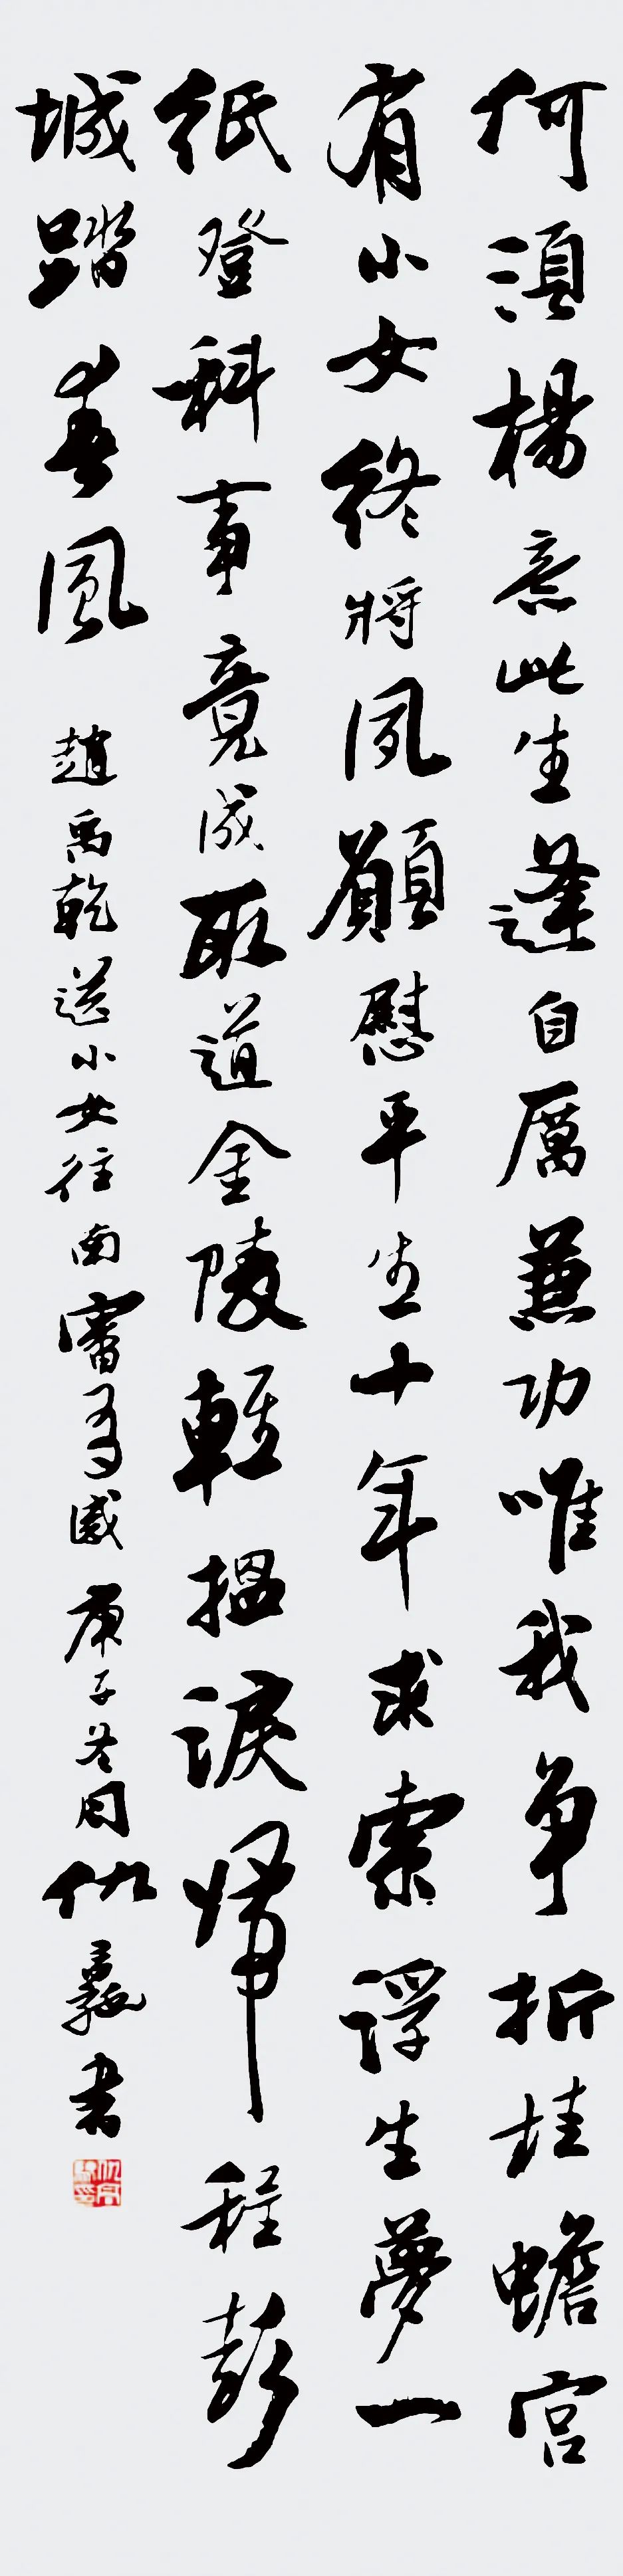 何須楊意此生逢自厲兼功唯我爭折桂蟾宮
有小女終將夙願慰平生十年求索浮生夢一
紙登科事竟成取道金陵輕搵淚歸程彭
城踏春風
趙禹乾送小女往南審有感 庚子冬月仇高書